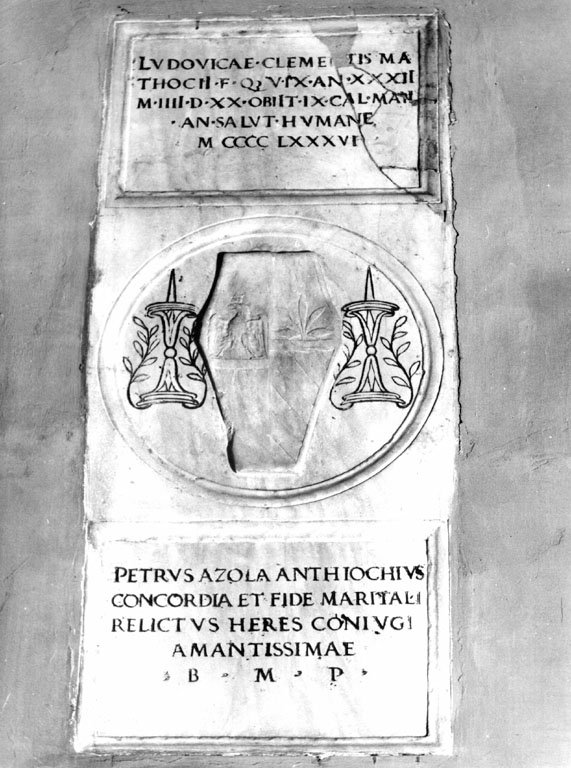 LVDOVICAE·CLEMENTIS MA
THOCII·F·Q·V·IX·AN·XXXII
M·IIII·D·XX·OBIIT·IX·CAL·MAII
·AN·SALVT·HVMANE
M CCCC LXXXVI
PETRVS AZOLA ANTHIOCHIVS
CONCORDIA ET FIDE MARITALI
RELICTVS HERES CONIVGI
AMANTISSIMAE
B · M · P ·